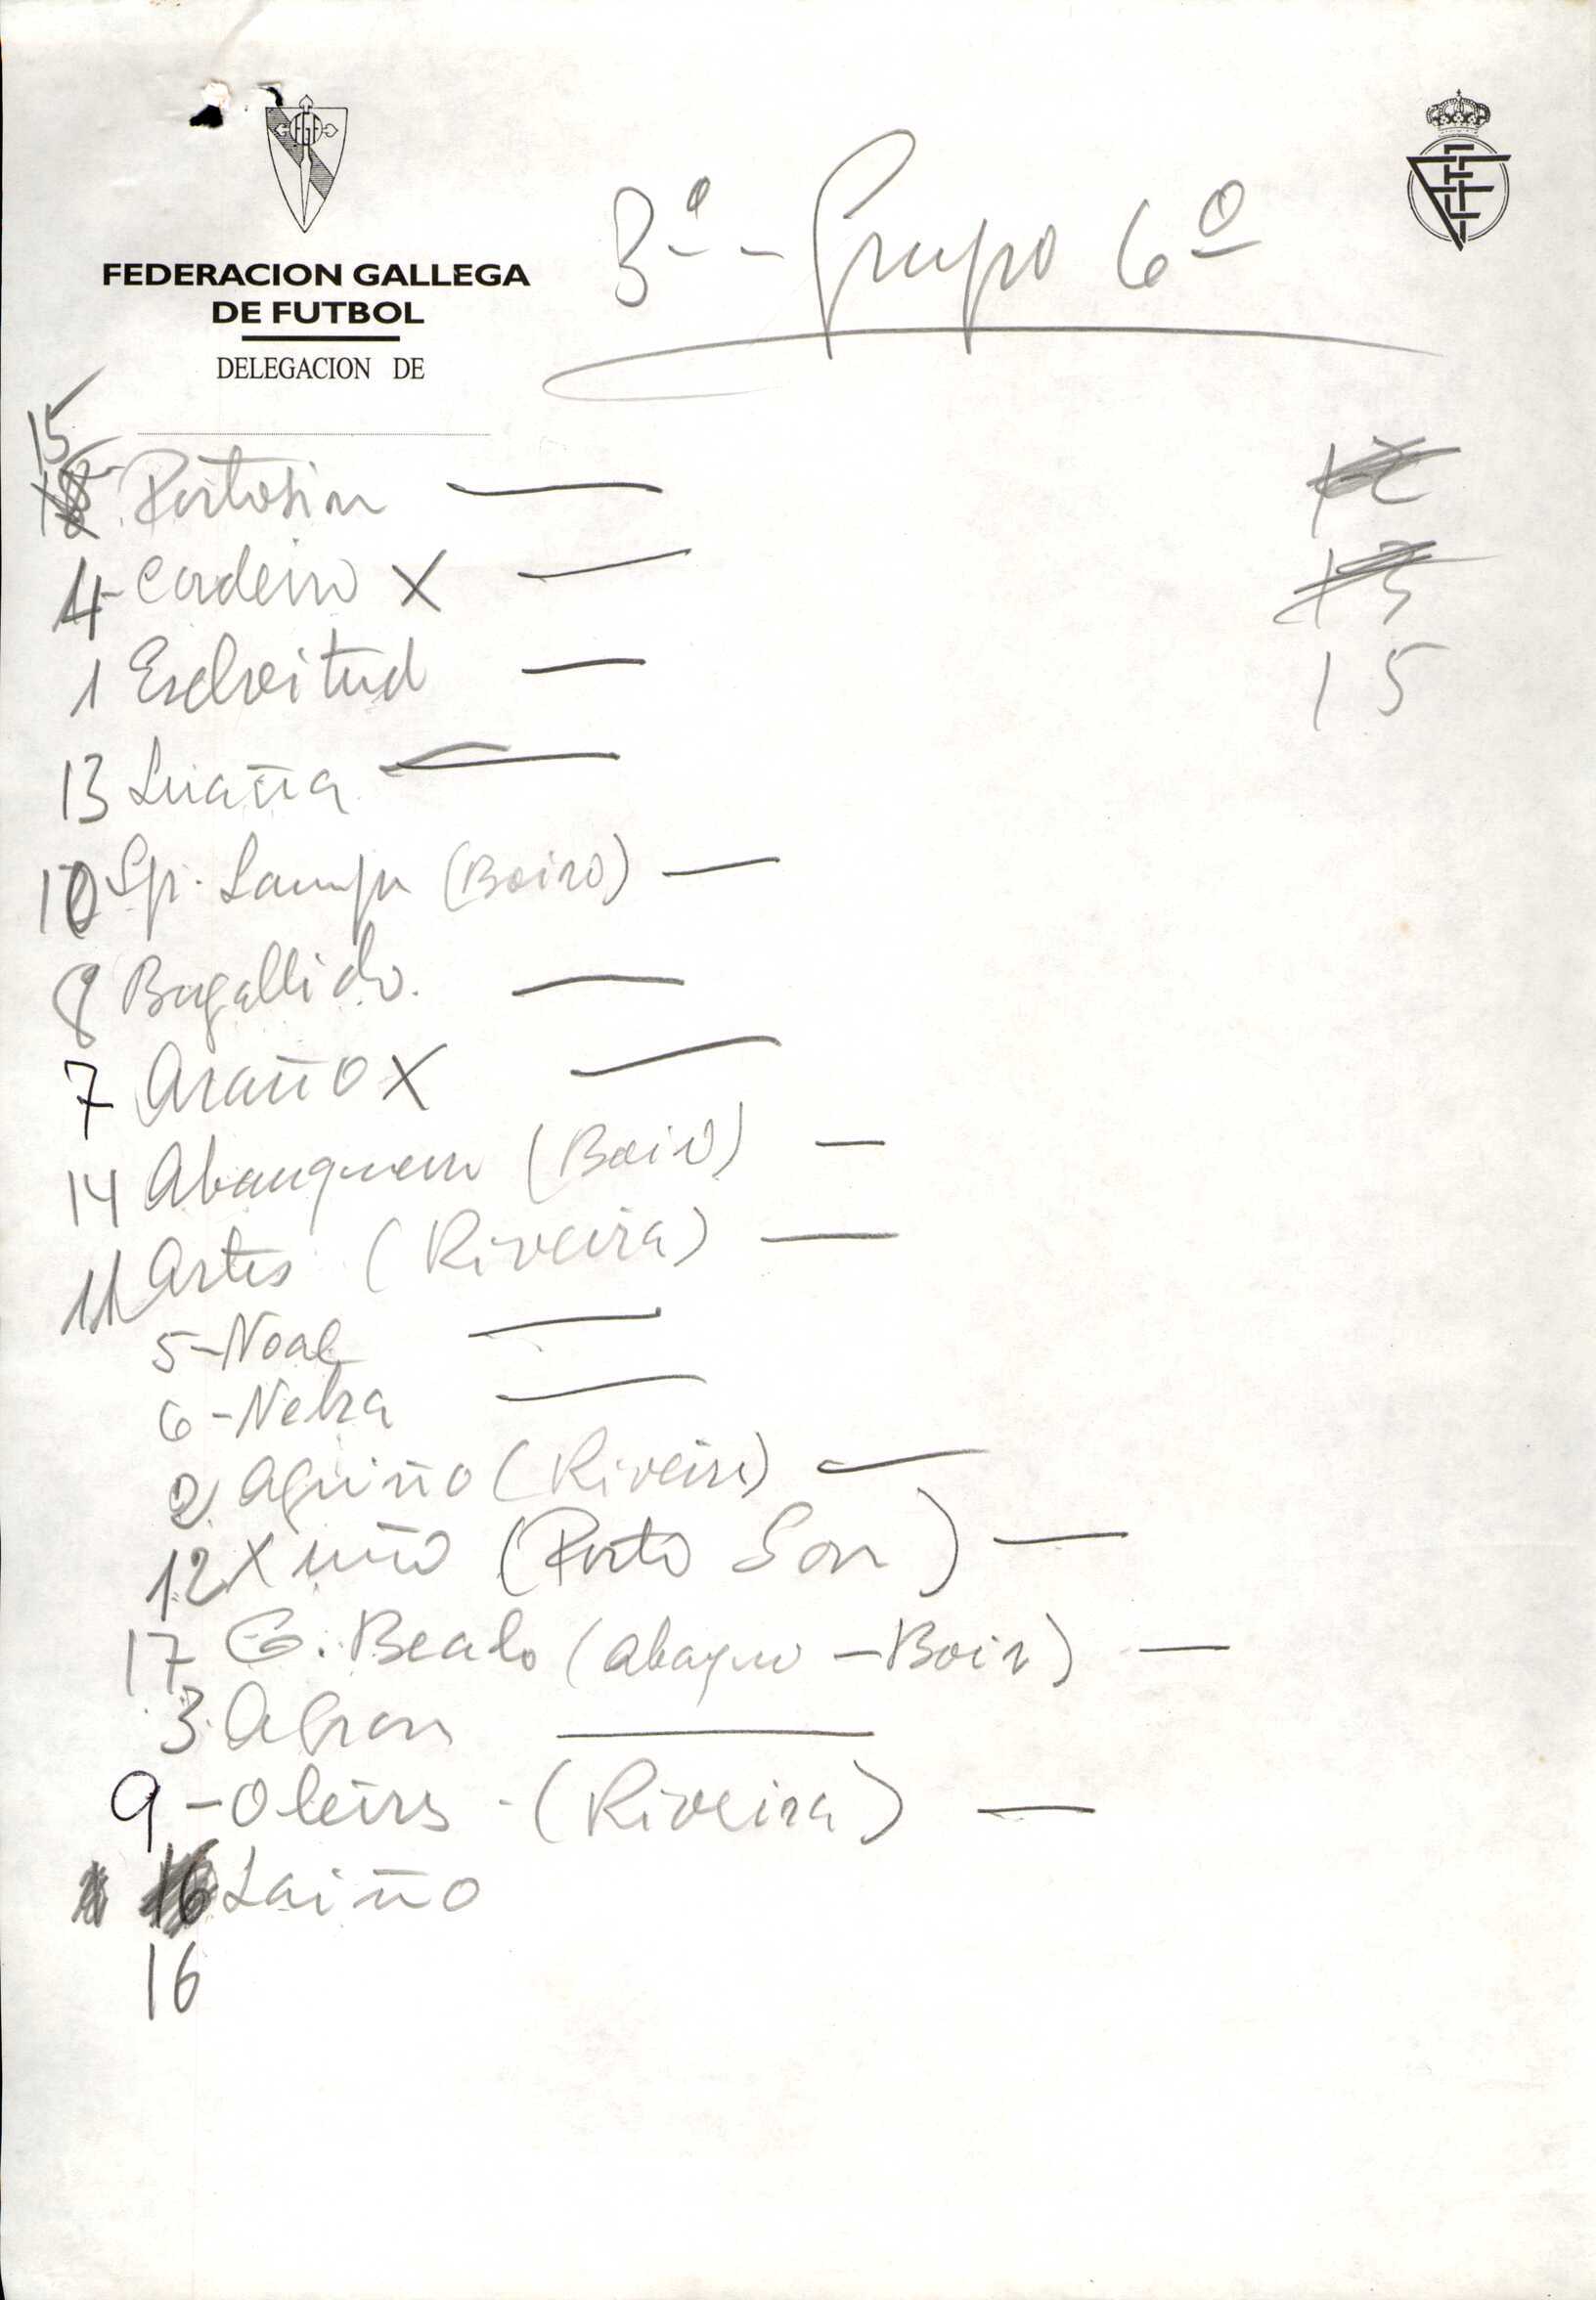 FGF
FEDERACION GALLEGA
DE FUTBOL
DELEGACION DE
3ª - Grupo 6º
15
Portosin —
4- Cordeiro X —
1 Esclavitud —
13 Luaña —
10 Sp. Lampn (Boiro) —
8 Bugallido. —
7 Araño X —
14 Abanqueiro (Boiro) —
11 Artes (Riveira) —
5- Noal —
6- Nebra —
2 Aguiño (Riveira) —
12 Xuño (Porto Son) —
17 C. Bealo (abaqu - Boiro) —
3 Agron —
9 - Oleiros - (Riveira) —
16 Laiño
16
15